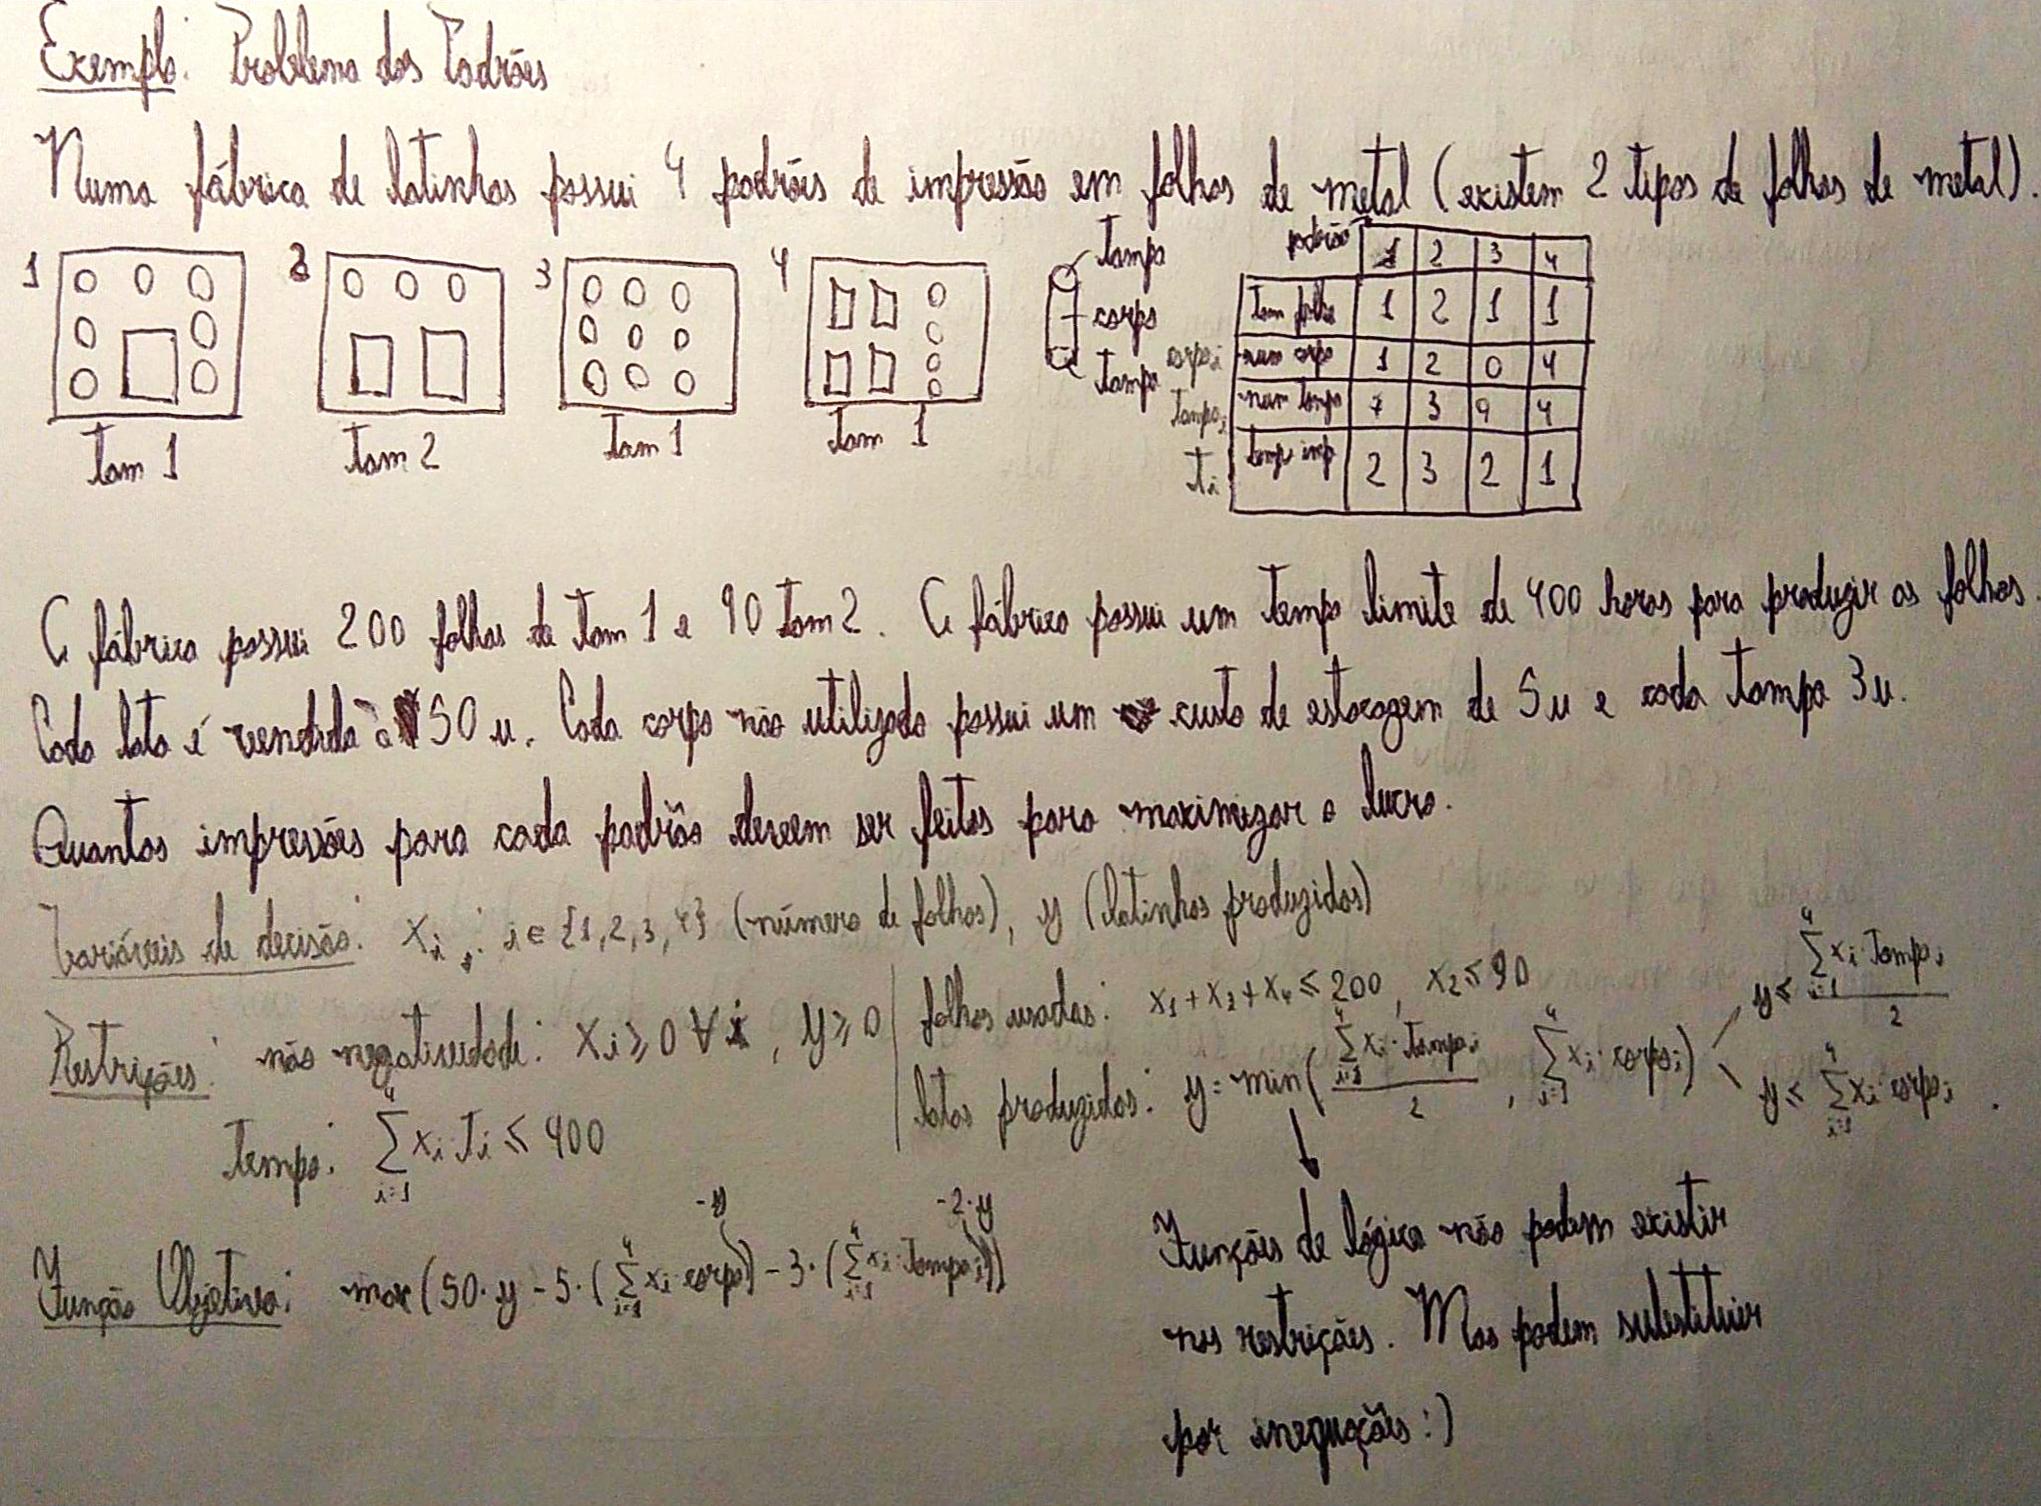 Exemplo: Problema dos Padrões
Numa fábrica de latinhas possui 4 padrões de impressão em folhas de metal (existem 2 tipos de folhas de metal).
1 2 3 4
Tam 1 Tam 2 Tam 1 Tam 1
Tampa
corpo
Tampa
padrão 1 2 3 4
Tam folha 1 2 1 1
corpoᵢ num corpo 1 2 0 4
Tampaᵢ num tampa 7 3 9 4
Tᵢ temp imp 2 3 2 1
A fábrica possui 200 folhas de Tam 1 e 90 Tam 2. A fábrica possui um tempo limite de 400 horas para produzir as folhas.
Cada lata é vendida à 50 u. Cada corpo não utilizado possui um custo de estocagem de 5u e cada Tampa 3u.
Quantas impressões para cada padrão devem ser feitas para maximizar o lucro.
Variáveis de decisão: Xᵢ, i ∈ {1,2,3,4} (número de folhas), y (latinhas produzidas)
Restrições: não negatividade: Xᵢ ≥ 0 ∀ i, y ≥ 0
Tempo: Σ⁴ᵢ₌₁ Xᵢ Tᵢ ≤ 400
folhas usadas: x₁ + x₃ + x₄ ≤ 200, x₂ ≤ 90
latas produzidas: y = min( Σ⁴ᵢ₌₁ xᵢ·Tampaᵢ / 2 , Σ⁴ᵢ₌₁ xᵢ·corpoᵢ)
y ≤ Σ⁴ᵢ₌₁ xᵢ·Tampaᵢ / 2
y ≤ Σ⁴ᵢ₌₁ xᵢ corpoᵢ
Funções de lógica não podem existir
nas restrições. Mas podem substituir
por inequações :)
Função Objetiva: max (50·y - 5·(Σ⁴ᵢ₌₁ xᵢ corpoᵢ - y) - 3·(Σ⁴ᵢ₌₁ xᵢ·Tampaᵢ - 2·y))